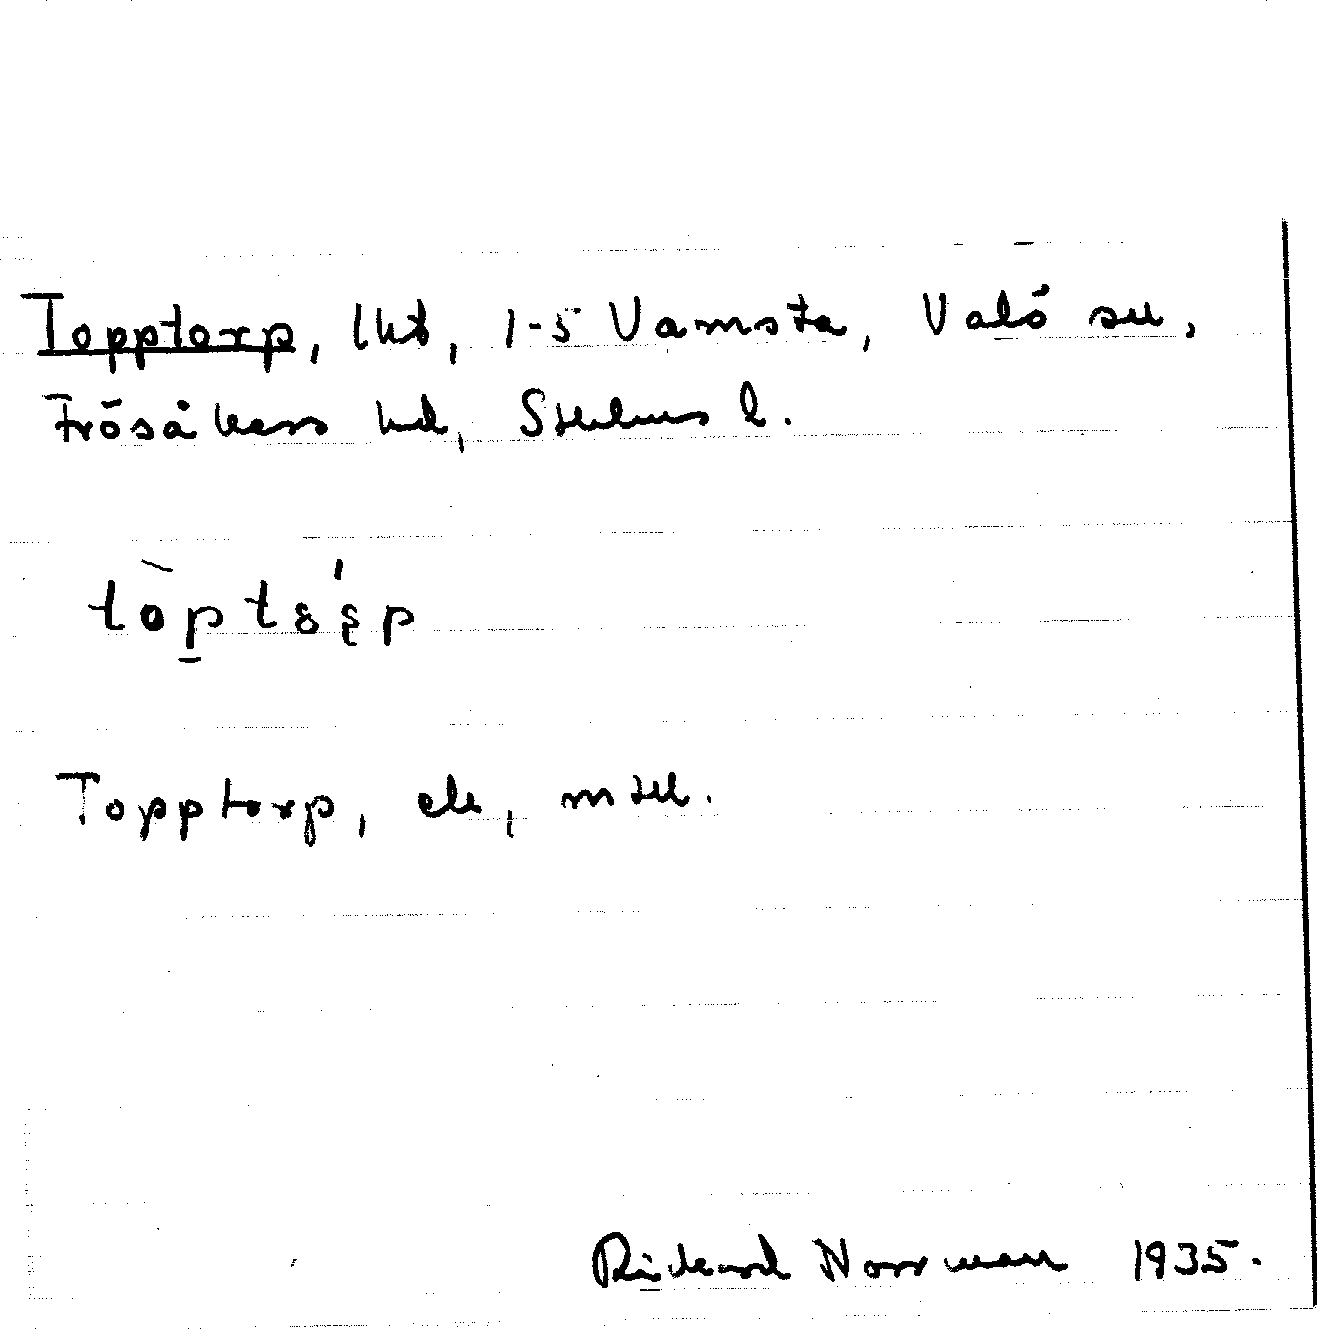 Topptorp, lht, 1-5 Vamsta, Valö sn,
Frösåkers hd, Sthlms l.
Topptorp, ek, mtl.
Rickard Norrman 1935.